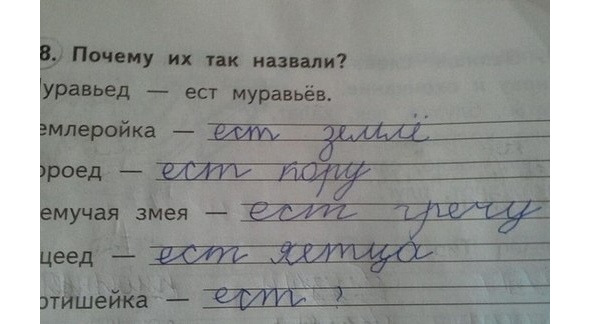 8. Почему их так назвали?
уравьед — ест муравьёв.
емлеройка — ест землё
роед — ест кору
емучая змея — ест гречу
цеед — ест яетца
ртишейка — ест ?